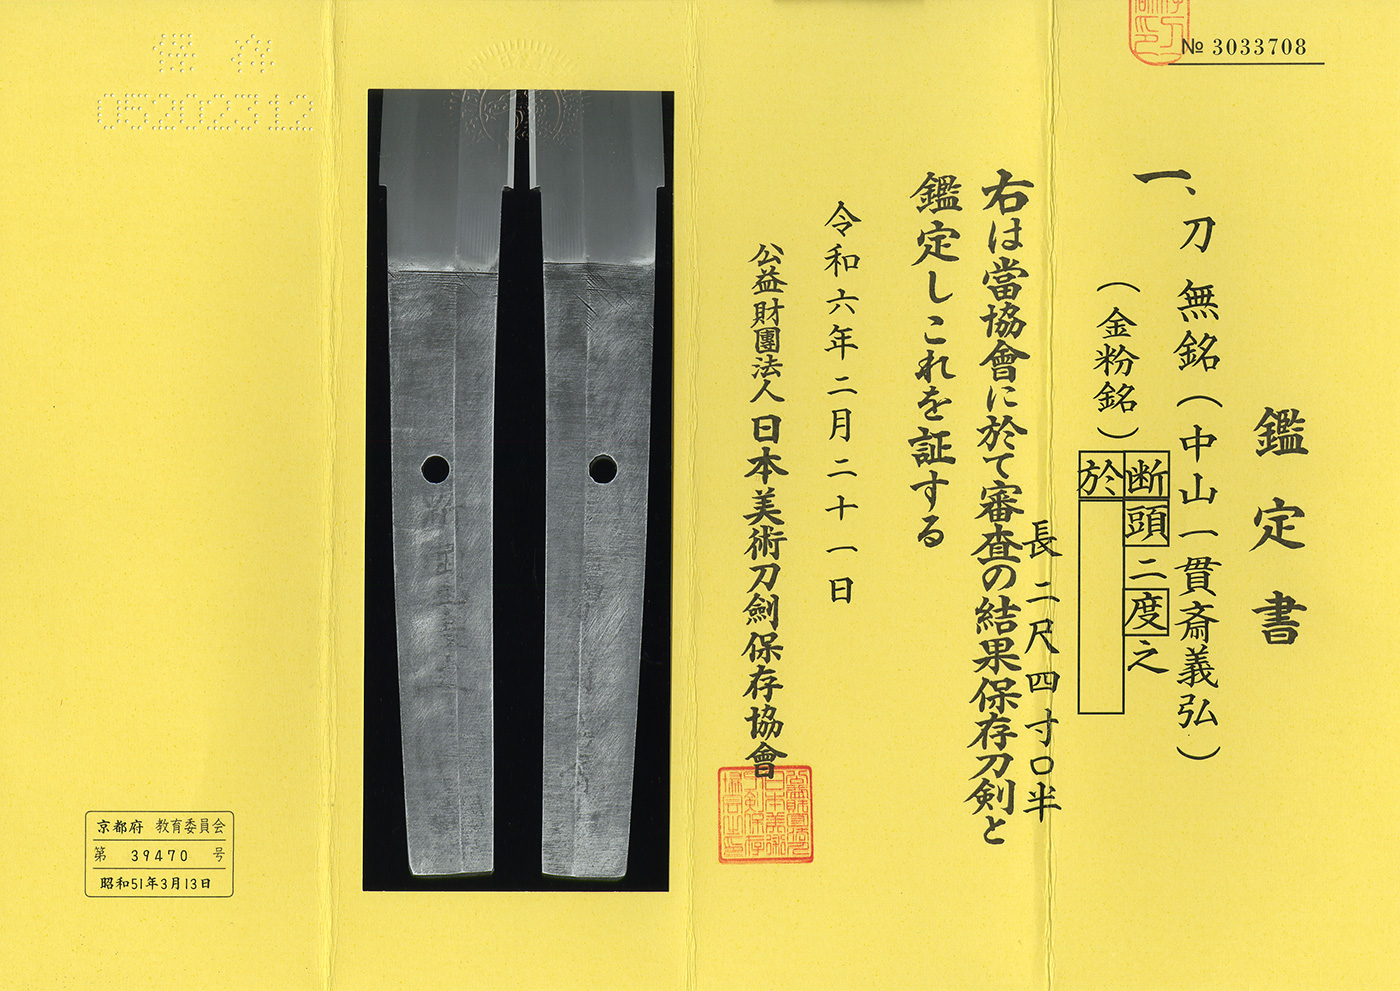 № 3033708
鑑定書
一、刀 無銘(中山一貫斎義弘)
(金粉銘)断頭二度之
於
長二尺四寸〇半
右は當協會に於て審査の結果保存刀剣と
鑑定しこれを証する
令和六年二月二十一日
公益財團法人 日本美術刀劍保存協會
保存
05202312
京都府 教育委員会
第 39470 号
昭和51年3月13日